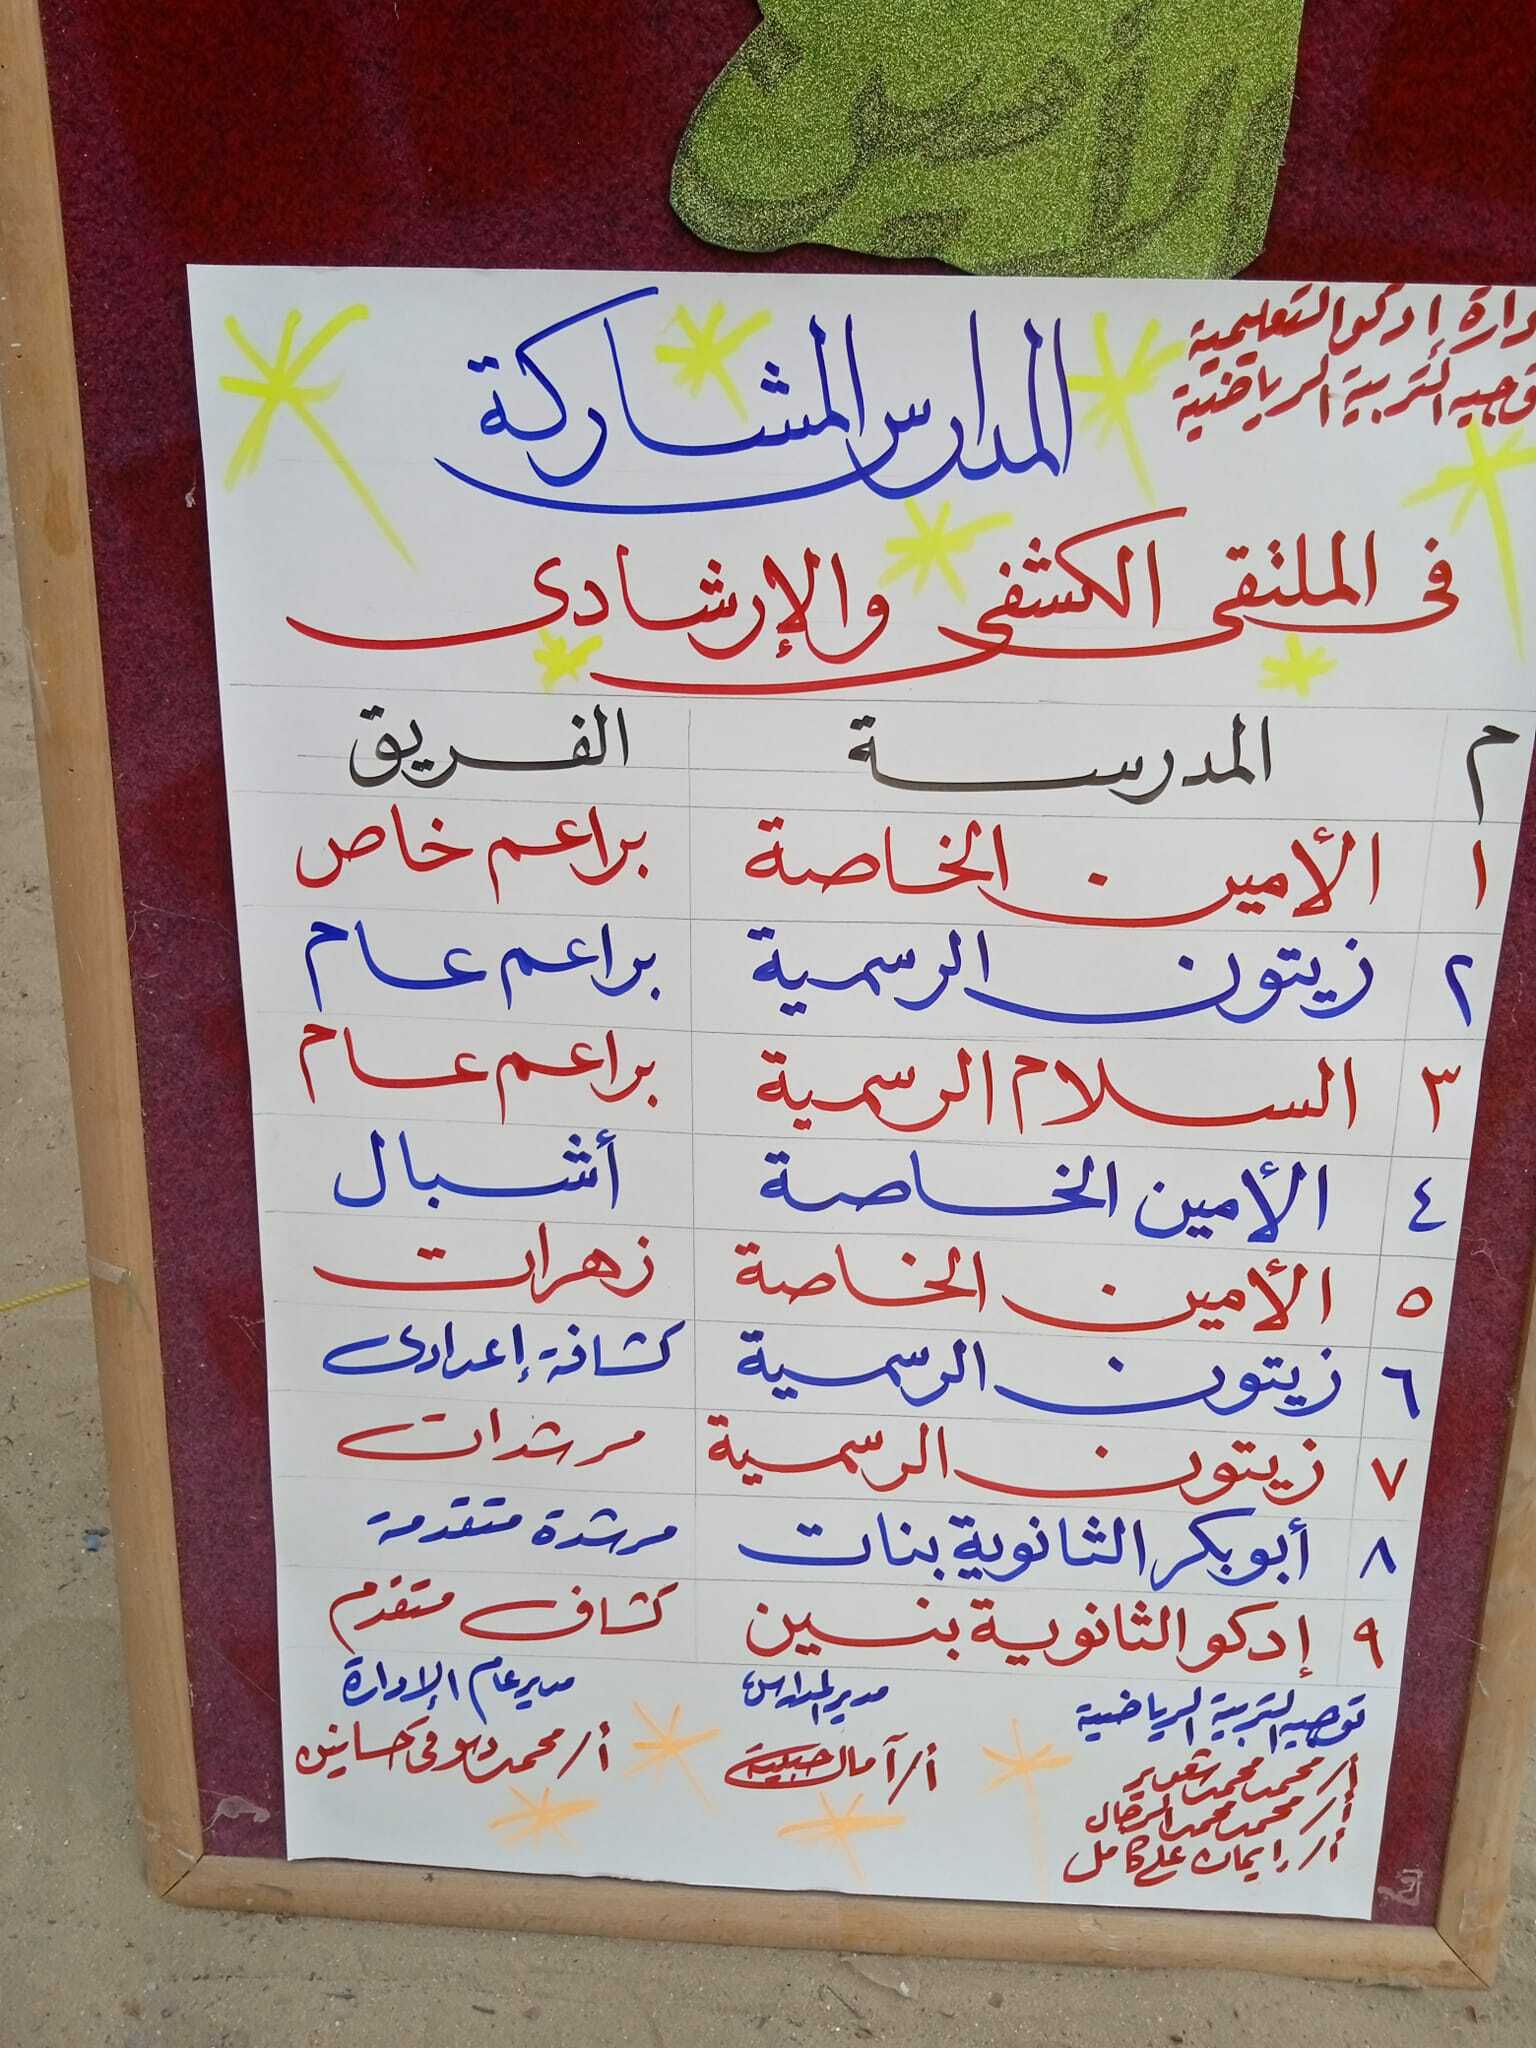 الأمين
إدارة إدكو التعليمية
توجيه التربية الرياضية
المدارس المشاركة
فى الملتقى الكشفى والإرشادى
م المدرسة الفريق
١ الأمين الخاصة براعم خاص
٢ زيتون الرسمية براعم عام
٣ السلام الرسمية براعم عام
٤ الأمين الخاصة أشبال
٥ الأمين الخاصة زهرات
٦ زيتون الرسمية كشافة إعدادى
٧ زيتون الرسمية مرشدات
٨ أبو بكر الثانوية بنات مرشدة متقدمة
٩ إدكو الثانوية بنين كشاف متقدم
توجيه التربية الرياضية مدير المدارس مدير عام الإدارة
أ/ محمد محمد شقوير أ/ آمال أ/ محمد دسوقى حسانين
أ/ محمد محمد
أ/ إيمان على كامل